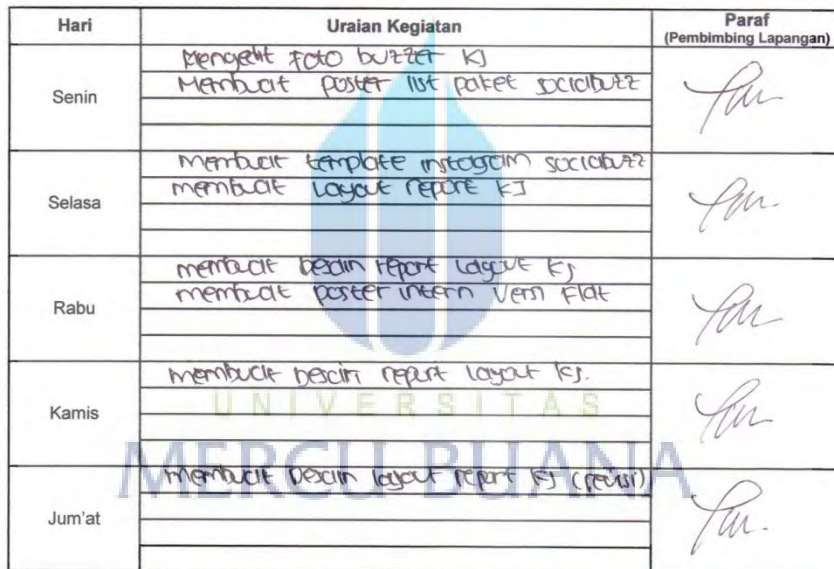 Hari Uraian Kegiatan Paraf
(Pembimbing Lapangan)
Mengedit Foto buzzer KJ
Senin
Membuat poster list paket sociabuzz
Selasa
membuat template instagram sociabuzz
membuat Layout report KJ
Rabu
membuat Desain report Layout KJ
membuat poster intern Versi Flat
Kamis
membuat Desain report Layout KJ.
UNIVERSITAS
MERCU BUANA
Jum'at
membuat Desain layout report KJ (revisi)